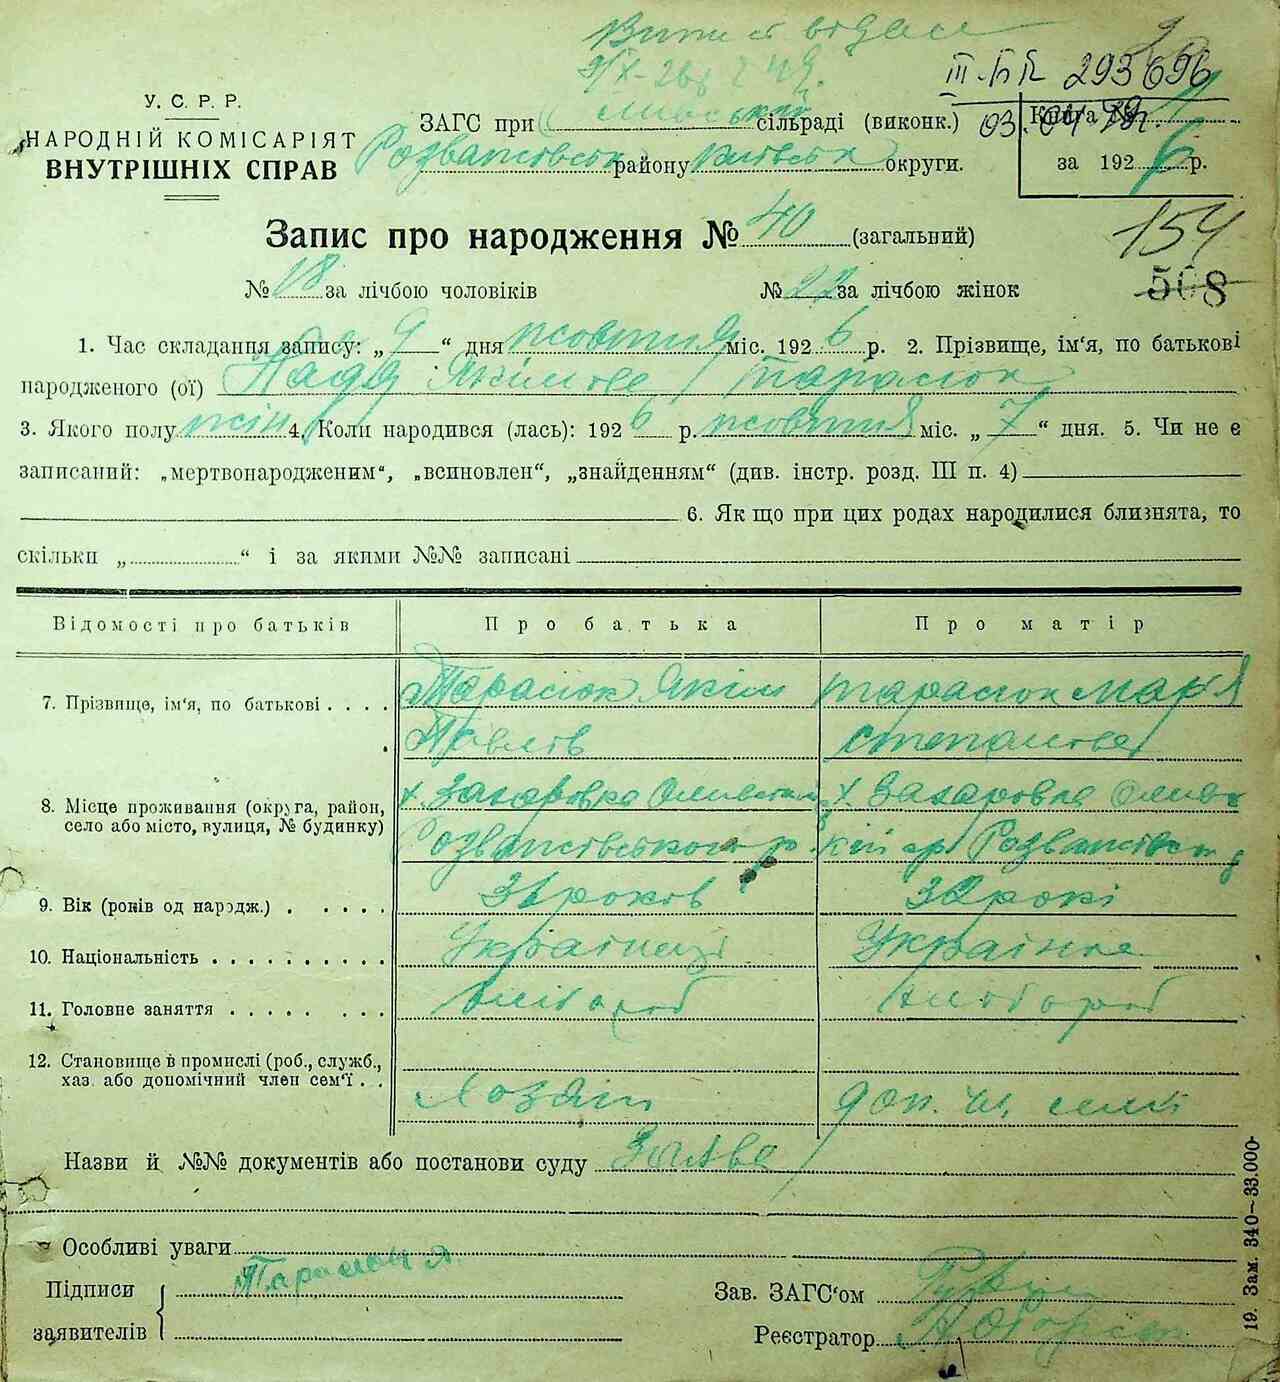 Випись видана
ІІІ-БК 293696
03.04.79г.
У. С. Р. Р.
НАРОДНІЙ КОМІСАРІЯТ
ВНУТРІШНІХ СПРАВ
ЗАГС при сільраді (виконк.)
Розважівськ району Київськ округи.
Книга №
за 1926 р.
Запис про народження № 40 (загальний)
154
№ 18 за лічбою чоловіків № 22 за лічбою жінок
508
1. Час складання запису: „ 9 “ дня жовтня міс. 1926 р. 2. Прізвище, ім'я, по батькові
народженого (ої) Надя Якімова Тарасюк
3. Якого полу жін 4. Коли народився (лась): 1926 р. жовтня міс. „ 7 “ дня. 5. Чи не є
записаний: „мертвонародженим“, „всиновлен“, „знайденням“ (див. інстр. розд. III п. 4)
6. Як що при цих родах народилися близнята, то
скільки „ “ і за якими №№ записані
Відомості про батьків Про батька Про матір
7. Прізвище, ім'я, по батькові . . . . Тарасюк Якім Тарасюк Марія
Павлов Степанова
8. Місце проживання (округа, район, х. Захаровка х. Захаровка
село або місто, вулиця, № будинку) Розважівського р.
9. Вік (років од народж.) . . . . . роков 32 рокі
10. Національність . . . . . . . . . . Українец Українка
11. Головне заняття . . . . . . . . . хлібороб хлібороб
12. Становище в промислі (роб., служб.,
хаз. або допомічний член сем'ї . . Хозяїн доп. чл. семї
Назви й №№ документів або постанови суду Заява
Особливі уваги
Підписи Тарасюк Я.
заявителів
Зав. ЗАГС'ом
Реєстратор
19. Зам. 340—33.000.